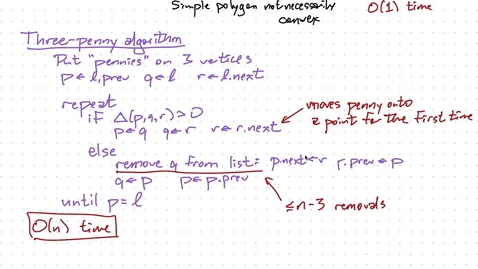 Simple polygon not necessarily convex
O(1) time
Three-penny algorithm
Put "pennies" on 3 vertices
p ← l.prev q ← l r ← l.next
repeat
if Δ(p,q,r) > 0
p ← q q ← r r ← r.next
moves penny onto a point for the first time
else
remove q from list: p.next ← r r.prev ← p
q ← p p ← p.prev
≤ n-3 removals
until p = l
O(n) time